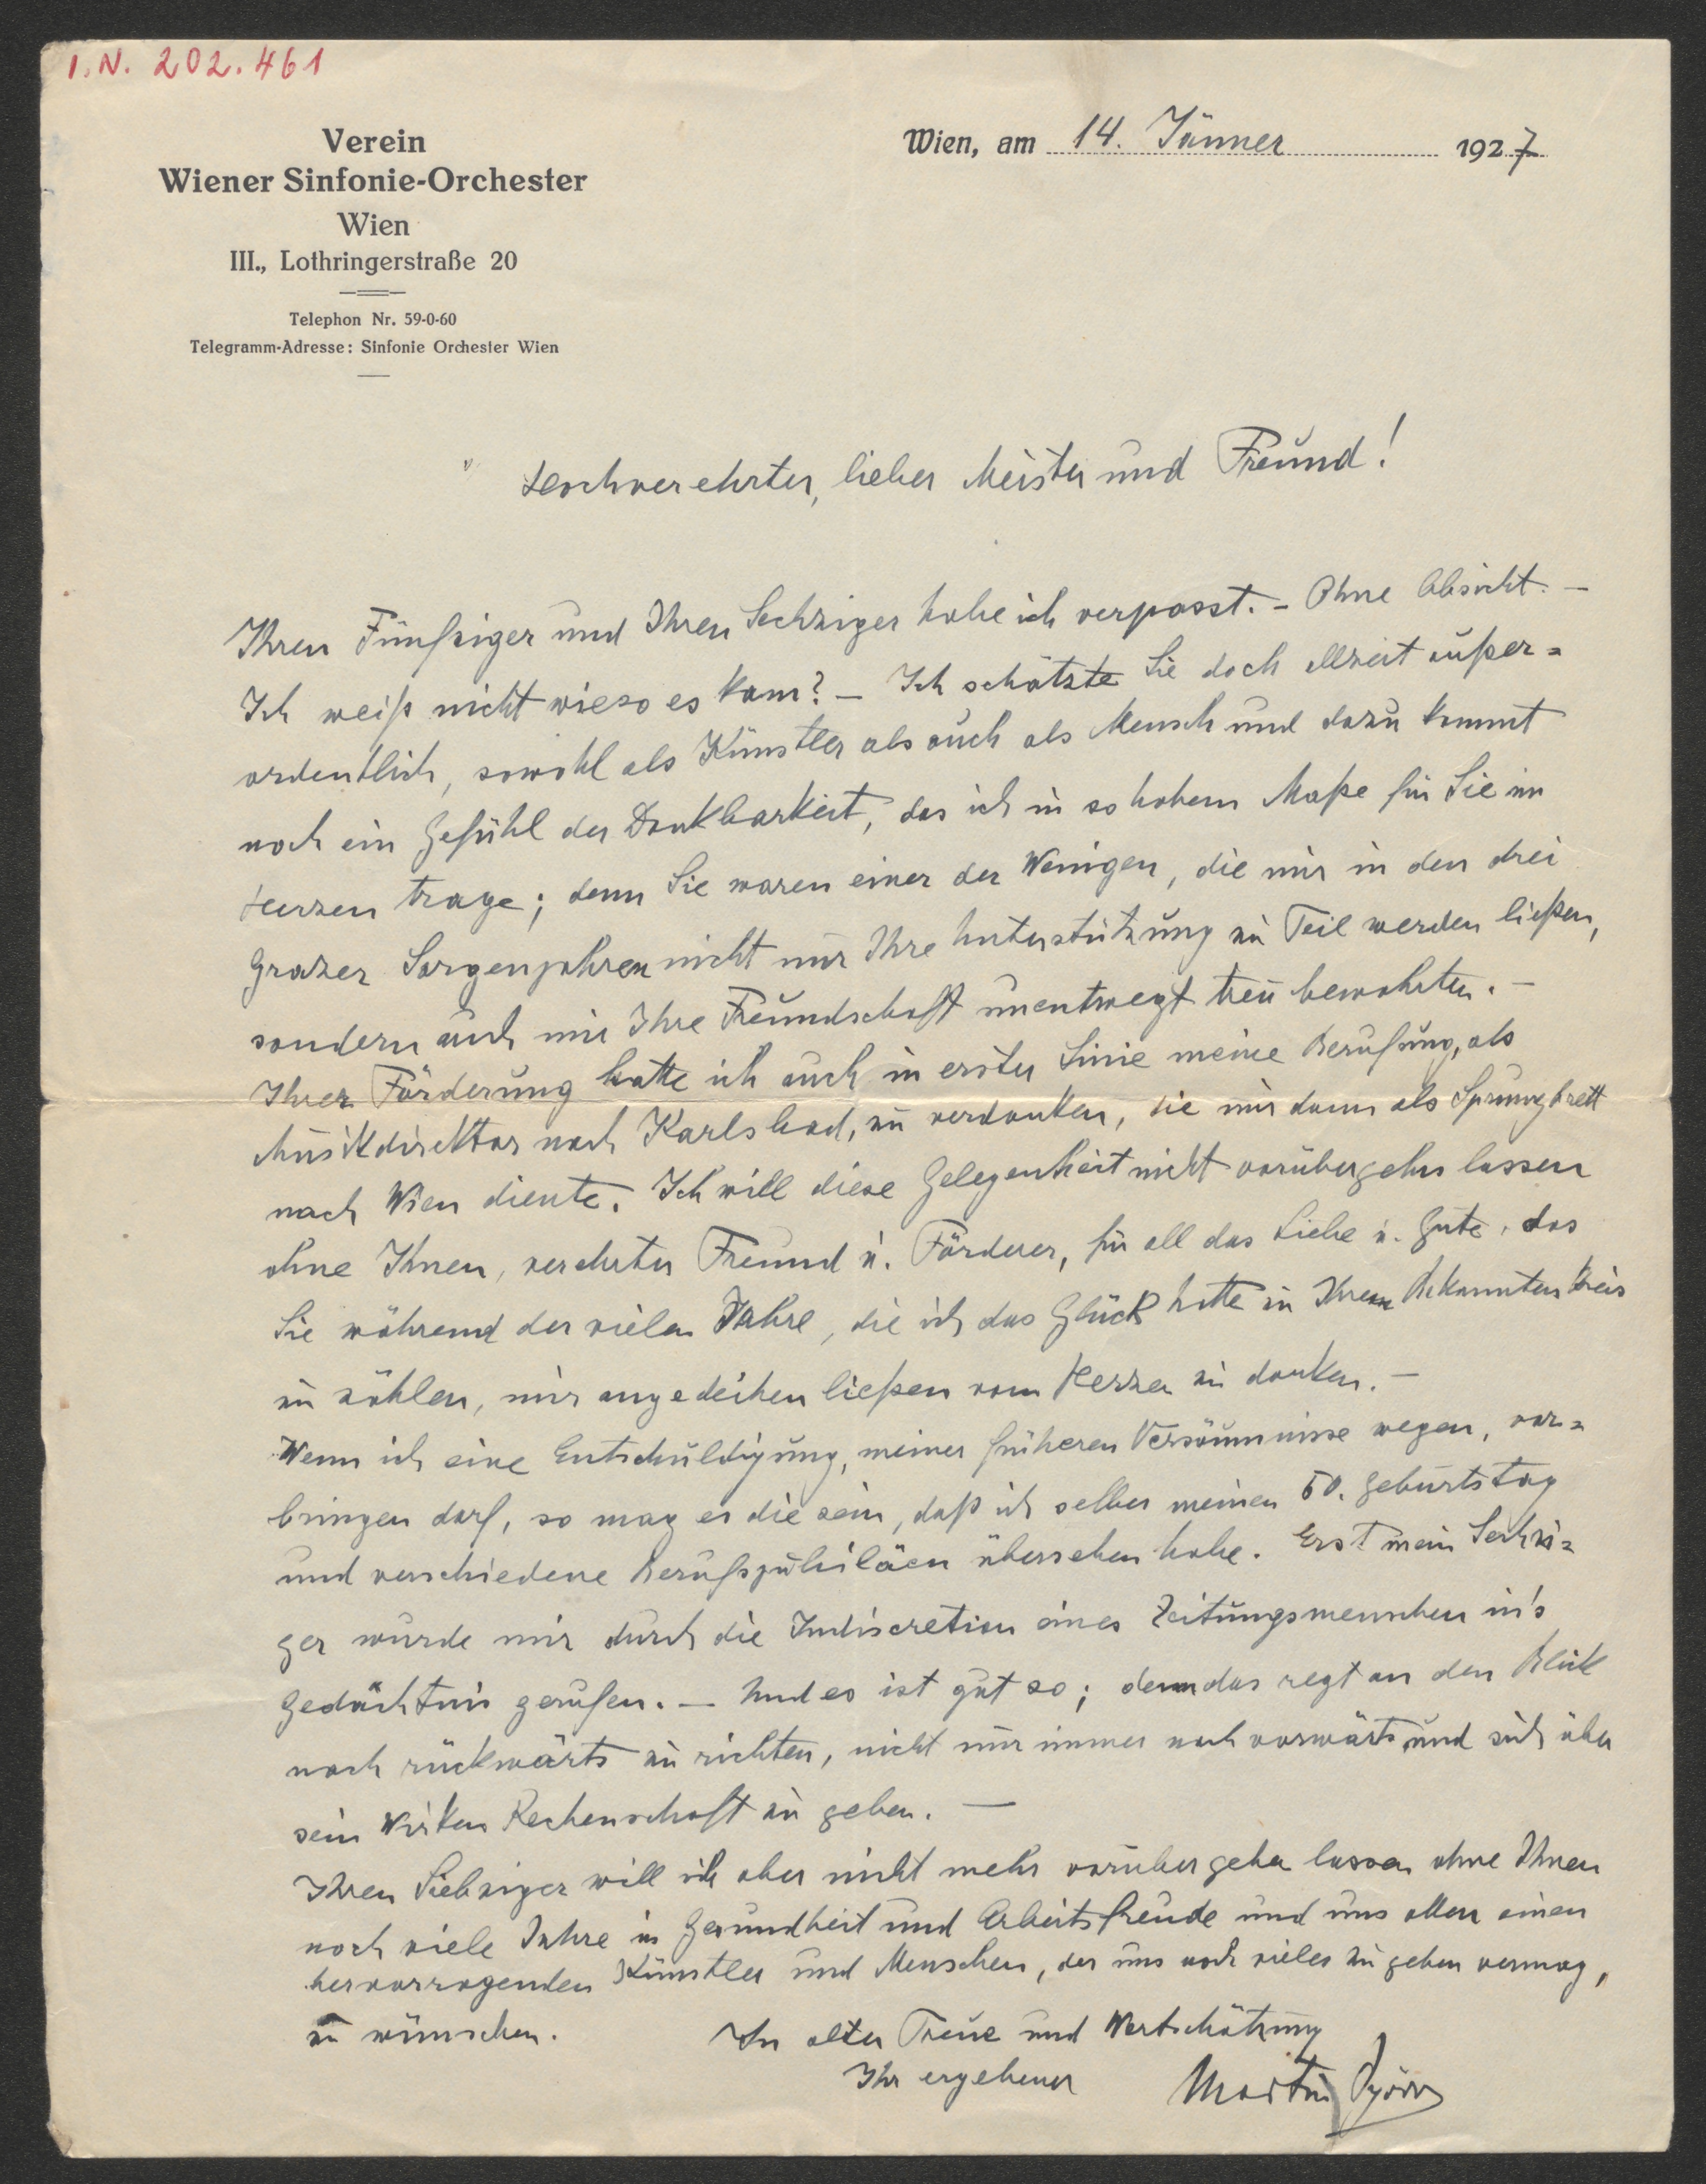 I.N. 202.461
Verein
Wiener Sinfonie-Orchester
Wien
III., Lothringerstraße 20
Telephon Nr. 59-0-60
Telegramm-Adresse: Sinfonie Orchester Wien
Wien, am 14. Jänner 1927
Hochverehrter, lieber Meister und Freund!
Ihren Fünfziger und Ihren Sechziger habe ich verpasst. - Ohne Absicht. -
Ich weiß nicht wieso es kam? - Ich schätzte Sie doch allzeit außer=
ordentlich, sowohl als Künstler als auch als Mensch und dazu kommt
noch ein Gefühl der Dankbarkeit, das ich in so hohem Maße für Sie im
Herzen trage; denn Sie waren einer der Wenigen, die mir in den drei
Grazer Sorgenjahren nicht nur Ihre Unterstützung zu Teil werden ließen,
sondern auch mir Ihre Freundschaft unentwegt treu bewahrten. -
Ihrer Förderung hatte ich auch in erster Linie meine Berufung, als
Musikdirektor nach Karlsbad, zu verdanken, die mir dann als Sprungbrett
nach Wien diente. Ich will diese Gelegenheit nicht vorübergehn lassen
ohne Ihnen, verehrter Freund u. Förderer, für all das Liebe u. Gute, das
Sie während der vielen Jahre, die ich das Glück hatte in Ihrem Bekanntenkreis
zu zählen, mir angedeihen ließen vom Herzen zu danken. -
Wenn ich eine Entschuldigung, meiner früheren Versäumnisse wegen, vor=
bringen darf, so mag es die sein, daß ich selber meinen 50. Geburtstag
und verschiedene Berufsjubiläen übersehen habe. Erst mein Sechzi=
ger wurde mir durch die Indiscretion eines Zeitungsmenschen in's
Gedächtnis gerufen. - Und es ist gut so; denn das regt an den Blick
nach rückwärts zu richten, nicht nur immer nach vorwärts und sich über
sein Wirken Rechenschaft zu geben. -
Ihren Siebziger will ich aber nicht mehr vorübergehen lassen ohne Ihnen
noch viele Jahre in Gesundheit und Arbeitsfreude und uns allen einen
hervorragenden Künstler und Menschen, der uns noch vieles zu geben vermag,
zu wünschen.
In alter Treue und Wertschätzung
Ihr ergebener Martin Spörr